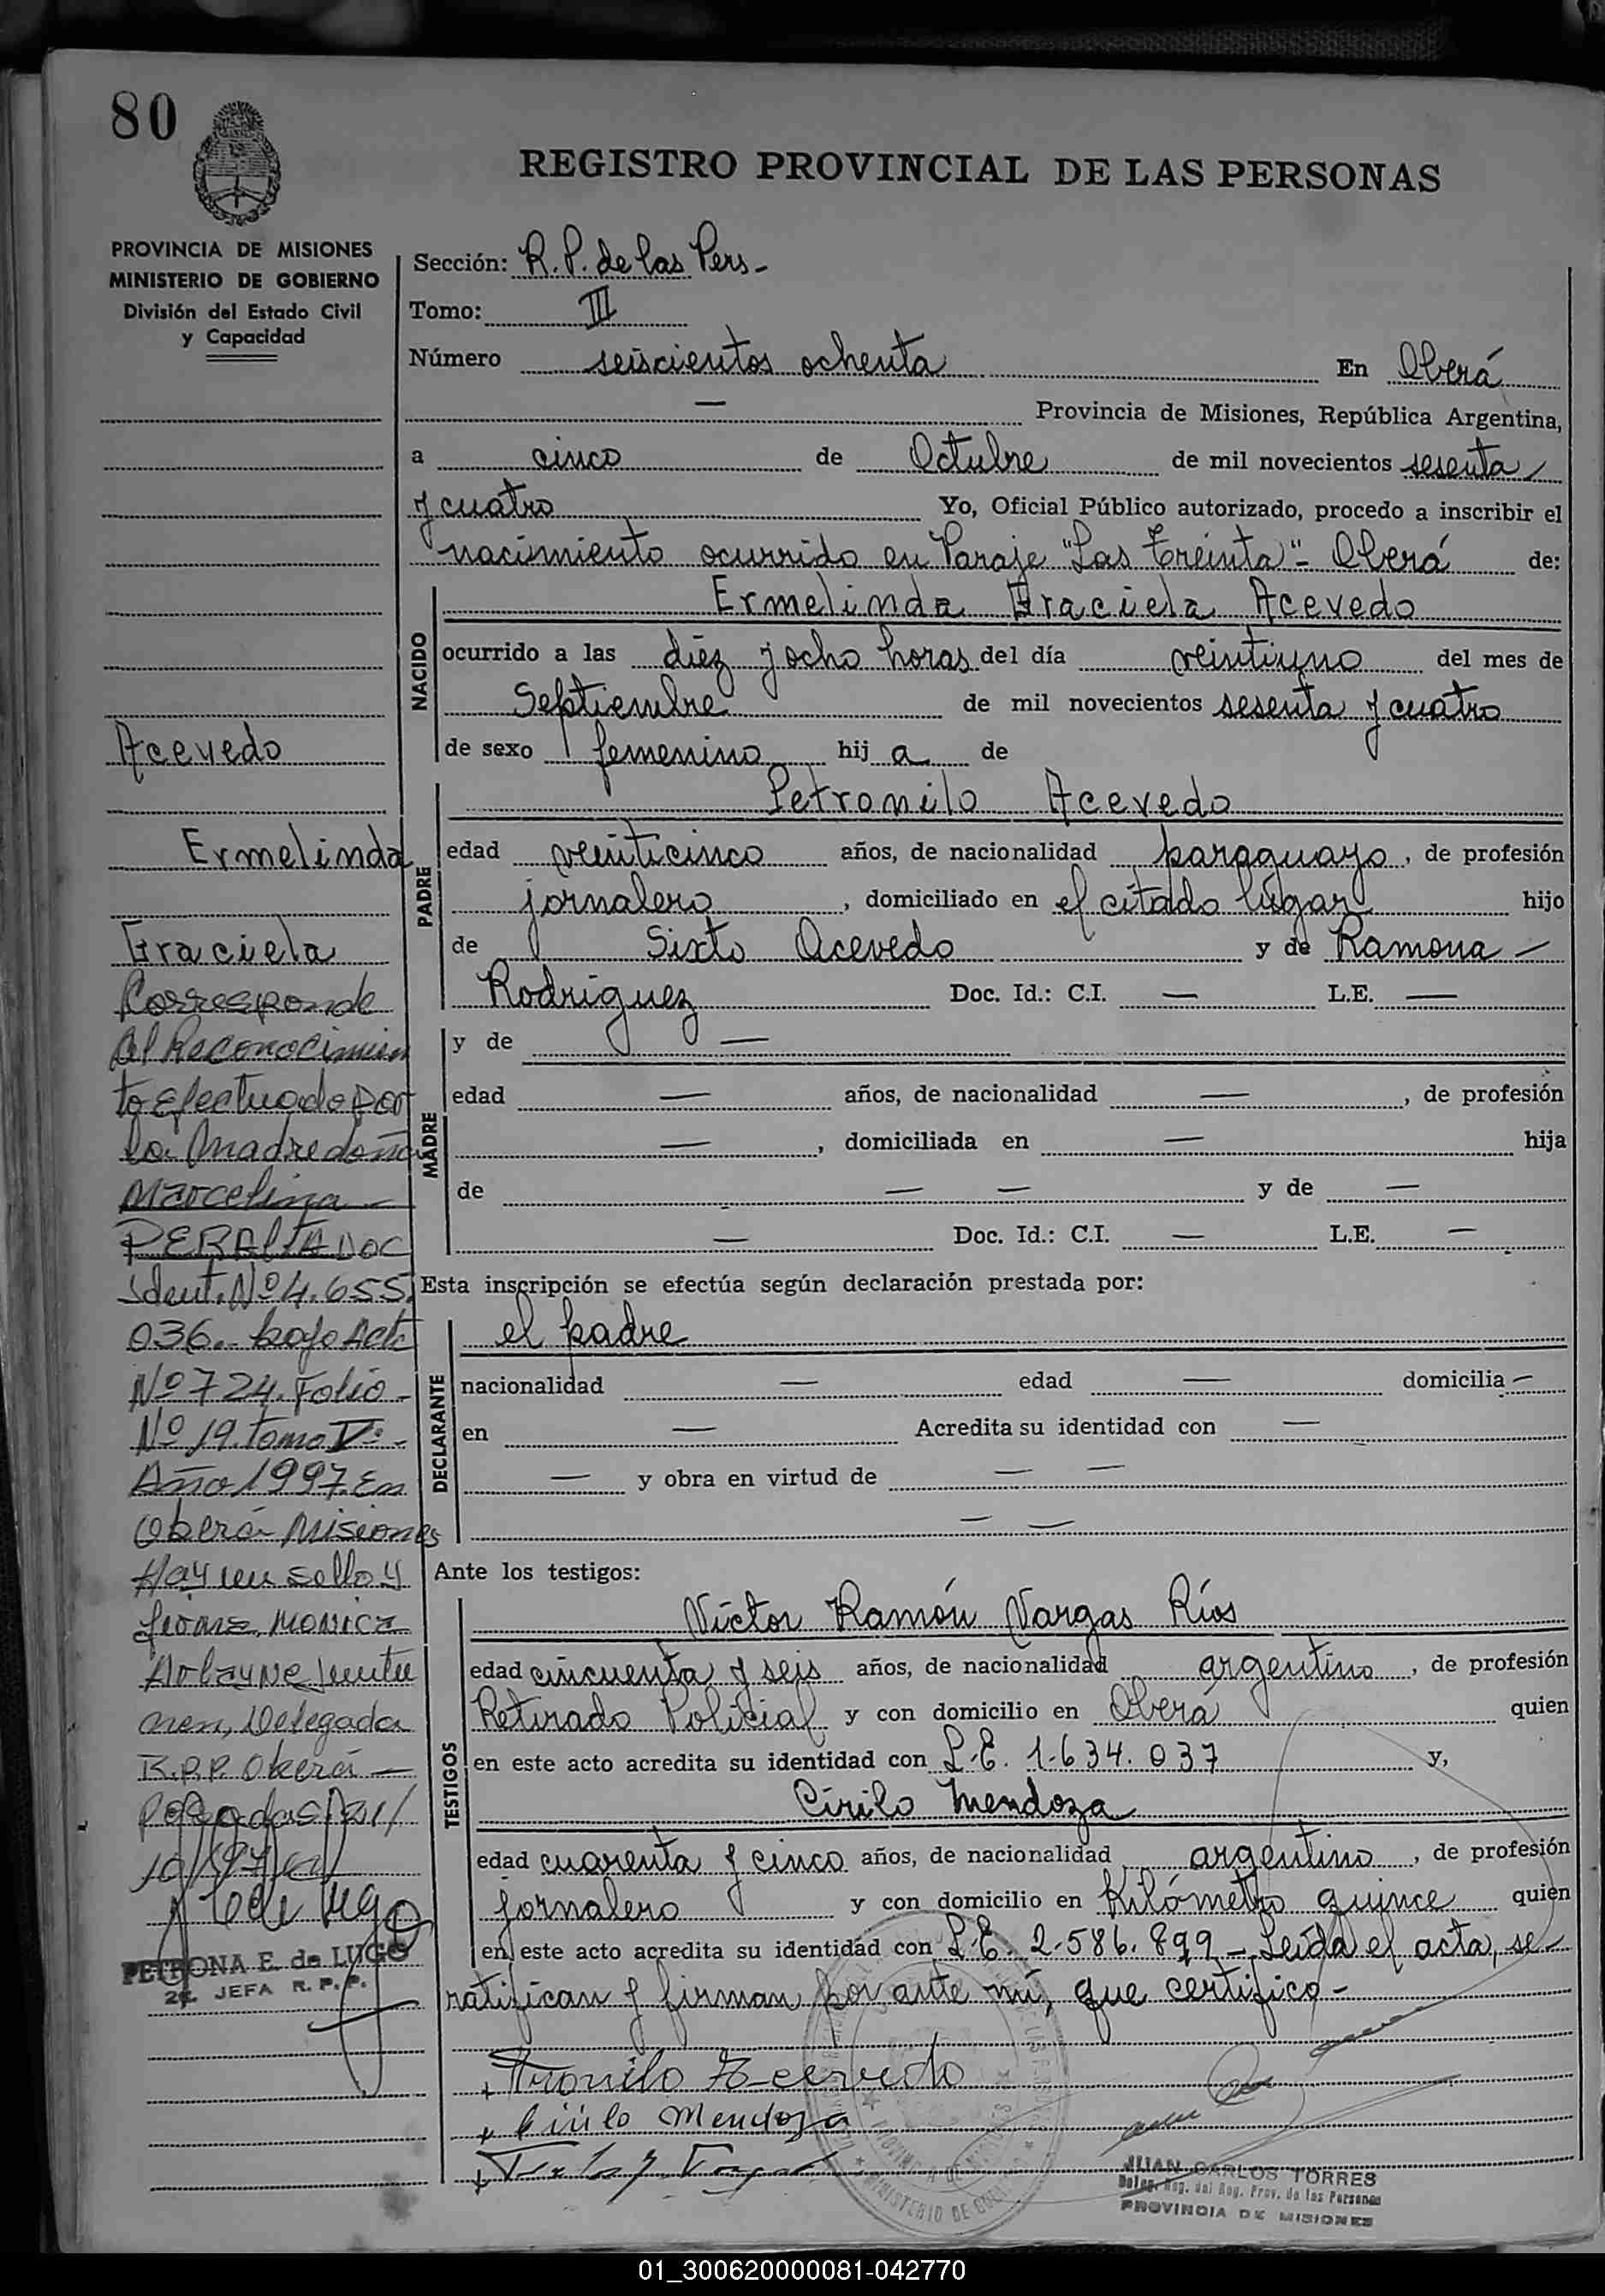 80
REGISTRO PROVINCIAL DE LAS PERSONAS
PROVINCIA DE MISIONES
MINISTERIO DE GOBIERNO
División del Estado Civil
y Capacidad
Sección: R. P. de las Pers -
Tomo: III
Número seiscientos ochenta En Oberá
— Provincia de Misiones, República Argentina,
a cinco de Octubre de mil novecientos sesenta
y cuatro Yo, Oficial Público autorizado, procedo a inscribir el
nacimiento ocurrido en Paraje "Las Treinta" - Oberá de:
NACIDO
Ermelinda Graciela Acevedo
ocurrido a las diez y ocho horas del día veintiuno del mes de
Septiembre de mil novecientos sesenta y cuatro
de sexo femenino hij a de
PADRE
Petronilo Acevedo
edad veinticinco años, de nacionalidad paraguayo, de profesión
jornalero, domiciliado en el citado lugar hijo
de Sixto Acevedo y de Ramona —
Rodriguez Doc. Id.: C.I. — L.E. —
y de —
MADRE
edad — años, de nacionalidad —, de profesión
—, domiciliada en — hija
de — — y de —
— Doc. Id.: C.I. — L.E. —
Esta inscripción se efectúa según declaración prestada por:
DECLARANTE
el padre
nacionalidad — edad — domicilia —
en — Acredita su identidad con —
— y obra en virtud de — —
— —
Ante los testigos:
TESTIGOS
Víctor Ramón Vargas Ríos
edad cincuenta y seis años, de nacionalidad argentino, de profesión
Retirado Policial y con domicilio en Oberá quien
en este acto acredita su identidad con L.E. 1.634.037 y,
Cirilo Mendoza
edad cuarenta y cinco años, de nacionalidad argentino, de profesión
jornalero y con domicilio en Kilómetro quince quien
en este acto acredita su identidad con L.E. 2.586.899 - Leída el acta, se -
ratifican y firman por ante mí, que certifico -
Acevedo
Cirilo Mendoza
JUAN CARLOS TORRES
Deleg. Reg. del Reg. Prov. de las Personas
PROVINCIA DE MISIONES
Acevedo
Ermelinda
Graciela
Corresponde
al Reconocimien
to Efectuado por
la Madre doña
Marcelina —
PERALTA DOC
Ident. Nº 4.655.
036.- bajo Acta
Nº 724. Folio -
Nº 19. Tomo Vº -
Año 1997. En
Oberá Misiones
Hay un sello y
firma, MONICA
Delegada
R.P.P. Oberá —
Posadas, 21/
10/97
PETRONA E. de LUGO
JEFA R. P. P.
01_300620000081-042770